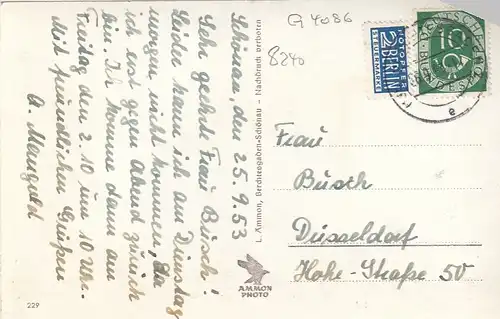 Schönau, den 25.9.53
Sehr geehrte Frau Büsch!
Leider kann ich am Dienstag
morgen nicht kommen, da
ich erst gegen Abend zurück
bin. Ich komme dann am
Freitag den 2.10 um 10 Uhr.
Mit freundlichen Grüßen
A. Mangold
229
L. Ammon, Berchtesgaden-Schönau - Nachdruck verboten
AMMON
PHOTO
G 4086
8240
NOTOPFER
2 BERLIN
STEUERMARKE
DEUTSCHE
BUNDESPOST
10
e
Frau
Büsch
Düsseldorf
Hohe-Straße 50